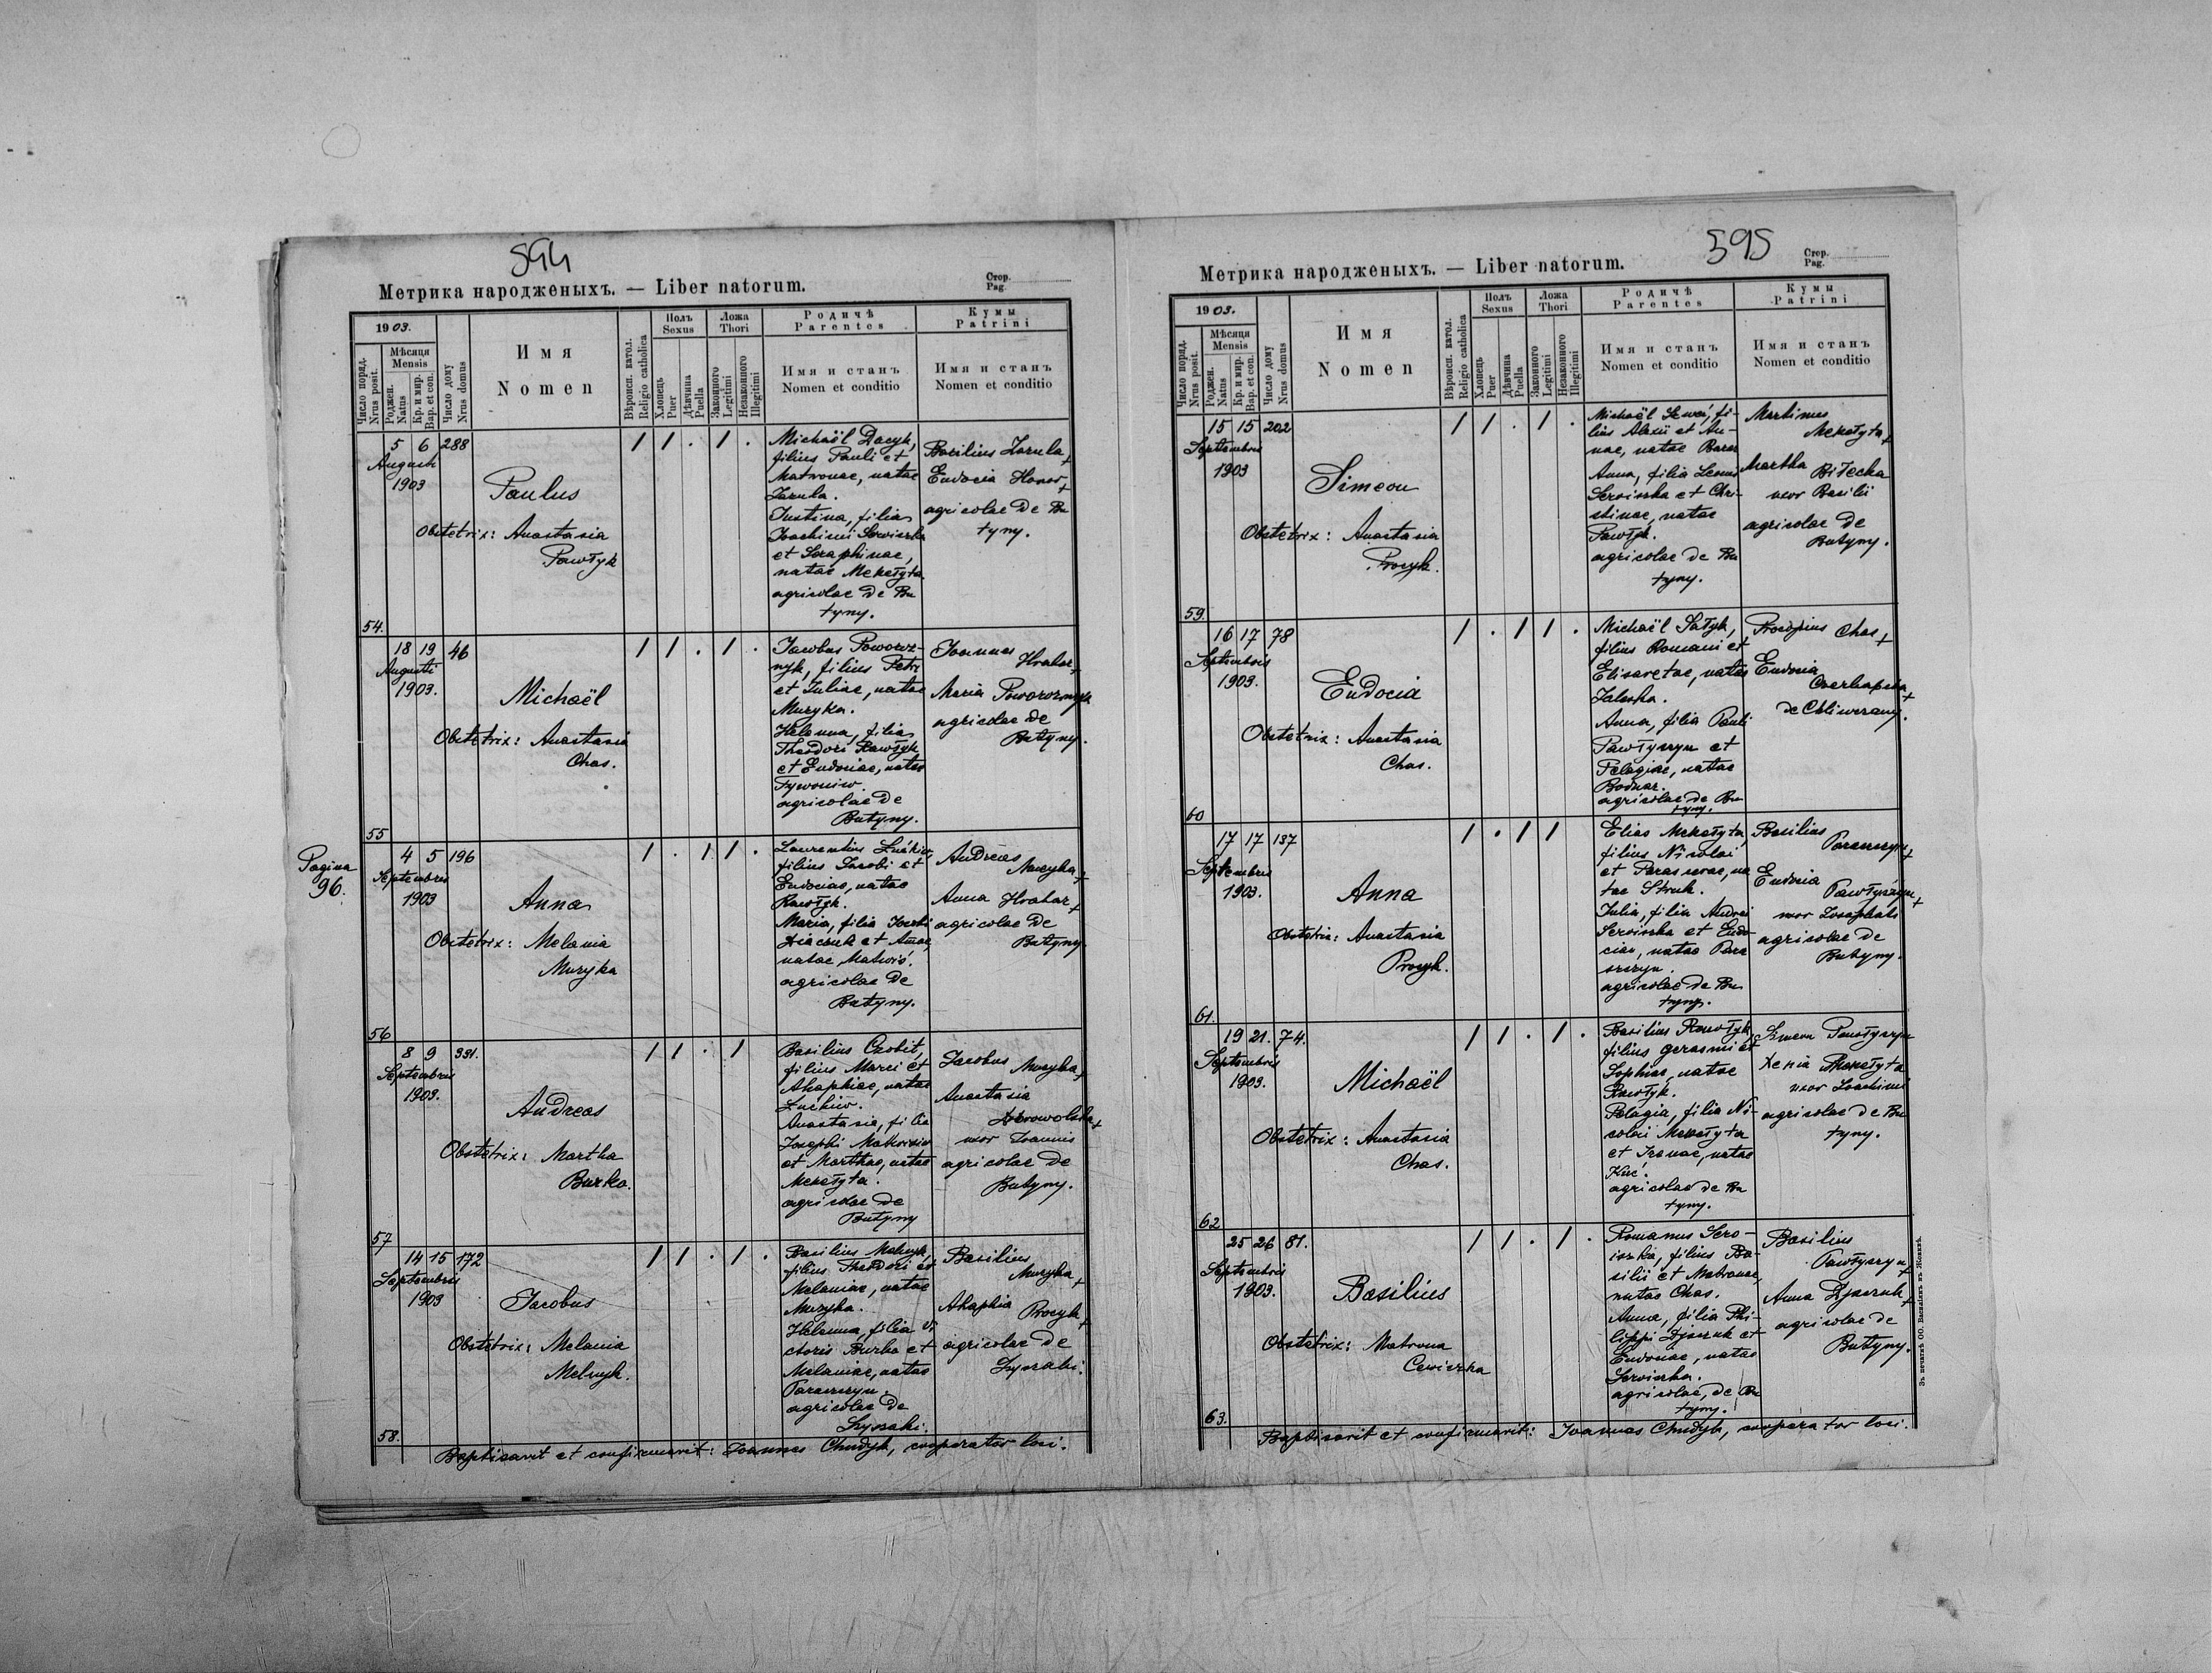 594
Метрика народженыхъ. — Liber natorum.
Стор.
Pag.
1903.
Число поряд.
Nrus posit.
Мѣсяця
Mensis
Роджен.
Natus
Кр. и мир.
Bap. et con.
Число дому
Nrus domus
Имя
Nomen
Вѣроисп. катол.
Religio catholica
Полъ
Sexus
Хлопець
Puer
Дѣвчина
Puella
Ложа
Thori
Законного
Legitimi
Незаконного
Illegitimi
Родичѣ
Parentes
Имя и станъ
Nomen et conditio
Кумы
Patrini
Имя и станъ
Nomen et conditio
54.
5 6 288
Augusti
1903
Paulus
Obstetrix: Anastasia
Pawłyk
1 1 . 1 .
Michaël Dacyk,
filius Pauli et
Matronae, natae
Zarula.
Justina, filia
Joachimi Serwiszka
et Seraphinae,
natae Mekełyta
agricolae de Bu
tyny.
Basilius Zarula +
Eudocia
agricolae de Bu
tyny.
55
18 19 46
Augusti
1903.
Michaël
Obstetrix: Anastasia
Chas.
1 1 . 1 .
Jacobus Poworoz-
nyk, filius Petri
et Juliae, natae
Muzyka.
Helenna, filia
Theodori Pawłyk
et Eudociae, natae
Tywoniw.
agricolae de
Butyny.
Joannes
Hrabar +
Maria Poworoznyk
agricolae de
Butyny.
Pagina
96.
56
4 5 196
Septembris
1903
Anna
Obstetrix: Melania
Muzyka
1 . 1 1 .
Laurentius Łuckiw,
filius Jacobi et
Eudociae, natae
Pawłyk.
Maria, filia Jacobi
Diaczuk et Annae,
natae Matwis.
agricolae de
Butyny.
Andreas
Muzyka +
Anna Hrabar +
agricolae de
Butyny.
57
8 9 331.
Septembris
1903.
Andreas
Obstetrix: Martha
Burko.
1 1 . 1
Basilius Czobit,
filius Marci et
Ahaphiae, natae
Łuckiw.
Anastasia, filia
Josephi
et Marthae, natae
Mekełyta.
agricolae de
Butyny
Jacobus Muzyka +
Anastasia
uxor Joannis
agricolae de
Butyny.
58.
14 15 172
Septembris
1903
Jacobus
Obstetrix: Melania
Melnyk.
1 1 . 1 .
Basilius Melnyk,
filius Theodori et
Melaniae, natae
Muzyka.
Helenna, filia Vi
ctoris Burko et
Melaniae, natae
Paraszczyn.
agricolae de
Łyssaki.
Basilius
Muzyka +
Ahaphia Procyk +
agricolae de
Łyssaki.
Baptisavit et confirmavit: Joannes Chudyk, cooperator loci.
595
Метрика народженыхъ. — Liber natorum.
Стор.
Pag.
1903.
Число поряд.
Nrus posit.
Мѣсяця
Mensis
Роджен.
Natus
Кр. и мир.
Bap. et con.
Число дому
Nrus domus
Имя
Nomen
Вѣроисп. катол.
Religio catholica
Полъ
Sexus
Хлопець
Puer
Дѣвчина
Puella
Ложа
Thori
Законного
Legitimi
Незаконного
Illegitimi
Родичѣ
Parentes
Имя и станъ
Nomen et conditio
Кумы
Patrini
Имя и станъ
Nomen et conditio
59.
15 15 202
Septembris
1903
Simeon
Obstetrix: Anastasia
Procyk.
1 1 . 1 .
Michaël fi-
lius Alexii et An-
nae, natae
Anna, filia
Serwiszka et Chri-
stinae, natae
Pawłyk.
agricolae de Bu
tyny.
Martinus
Mekełyta +
Martha Biłecka
uxor Basilii
agricolae de
Butyny.
60
16 17 78
Septembris
1903.
Eudocia
Obstetrix: Anastasia
Chas.
1 . 1 1 .
Michaël Sałyk,
filius Romani et
Elisavetae, natae
Zaleska.
Anna, filia Pauli
Pawłyszyn et
Pelagiae, natae
Bodnar.
agricolae de Bu
tyny.
Procopius Chas +
Eudocia
de Chliwczany.
61.
17 17 137
Septembris
1903.
Anna
Obstetrix: Anastasia
Procyk.
1 . 1 1
Elias Mekełyta,
filius Nicolai
et Parascevae, na
tae Struk.
Julia, filia Andrei
Serwiszka et Eudo-
ciae, natae Para
szczyn.
agricolae de Bu
tyny.
Basilius
Paraszczyn +
Eudocia
Pawłyszyn +
uxor Josaphati
agricolae de
Butyny.
62
19 21. 74.
Septembris
1903.
Michaël
Obstetrix: Anastasia
Chas.
1 1 . 1 .
Basilius Pawłyk,
filius Gerasmi et
Sophiae, natae
Pawłyk.
Pelagia, filia Ni-
colai Mekełyta
et Irenae, natae
Kuć.
agricolae de Bu
tyny.
Simeon Pawłyszyn
Xenia Mekełyta
uxor Joachimi
agricolae de Bu
tyny.
63.
25 26 81.
Septembris
1903.
Basilius
Obstetrix: Matrona
Cewiczka
1 1 . 1 .
Romanus Ser-
wiszka, filius Ba-
silii et Matronae,
natae Chas.
Anna, filia Phi-
lippi Djaczuk et
Eudociae, natae
Serwiszka.
agricolae, de Bu
tyny.
Basilius
Pawłyszyn +
Anna Djaczuk +
agricolae de
Butyny.
Baptisavit et confirmavit: Joannes Chudyk, cooperator loci.
Зъ печатнѣ ОО. Василіянъ въ Жовквѣ.